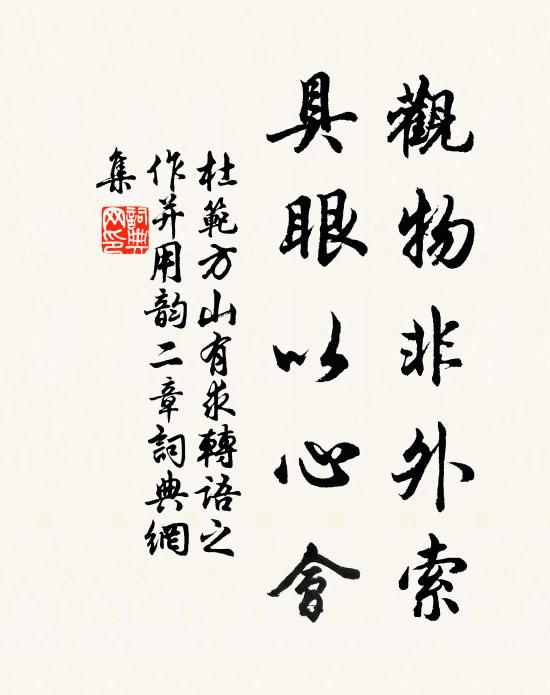 觀物非外索
具眼以心會
杜範方山有求轉語之
作并用韵二章詞典網
集
詞典网印